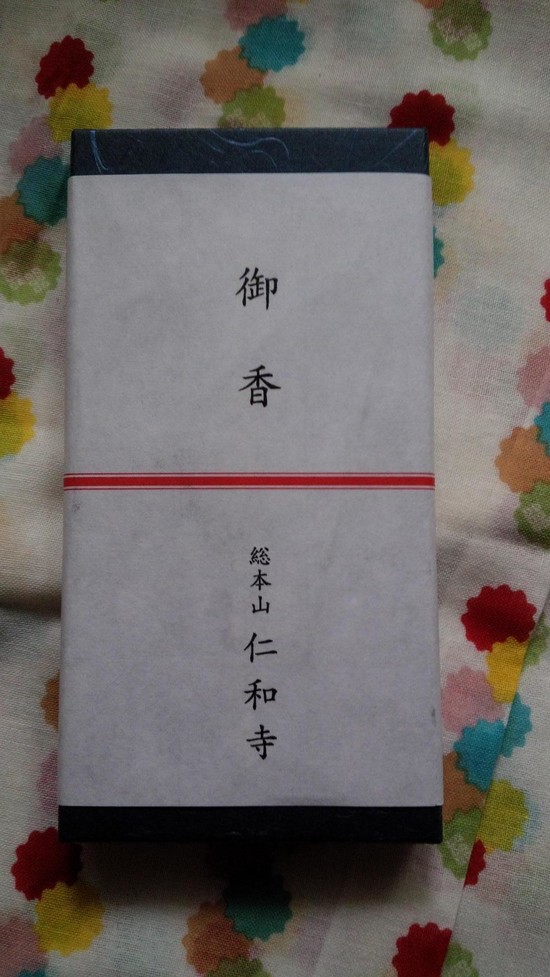 御香
総本山 仁和寺